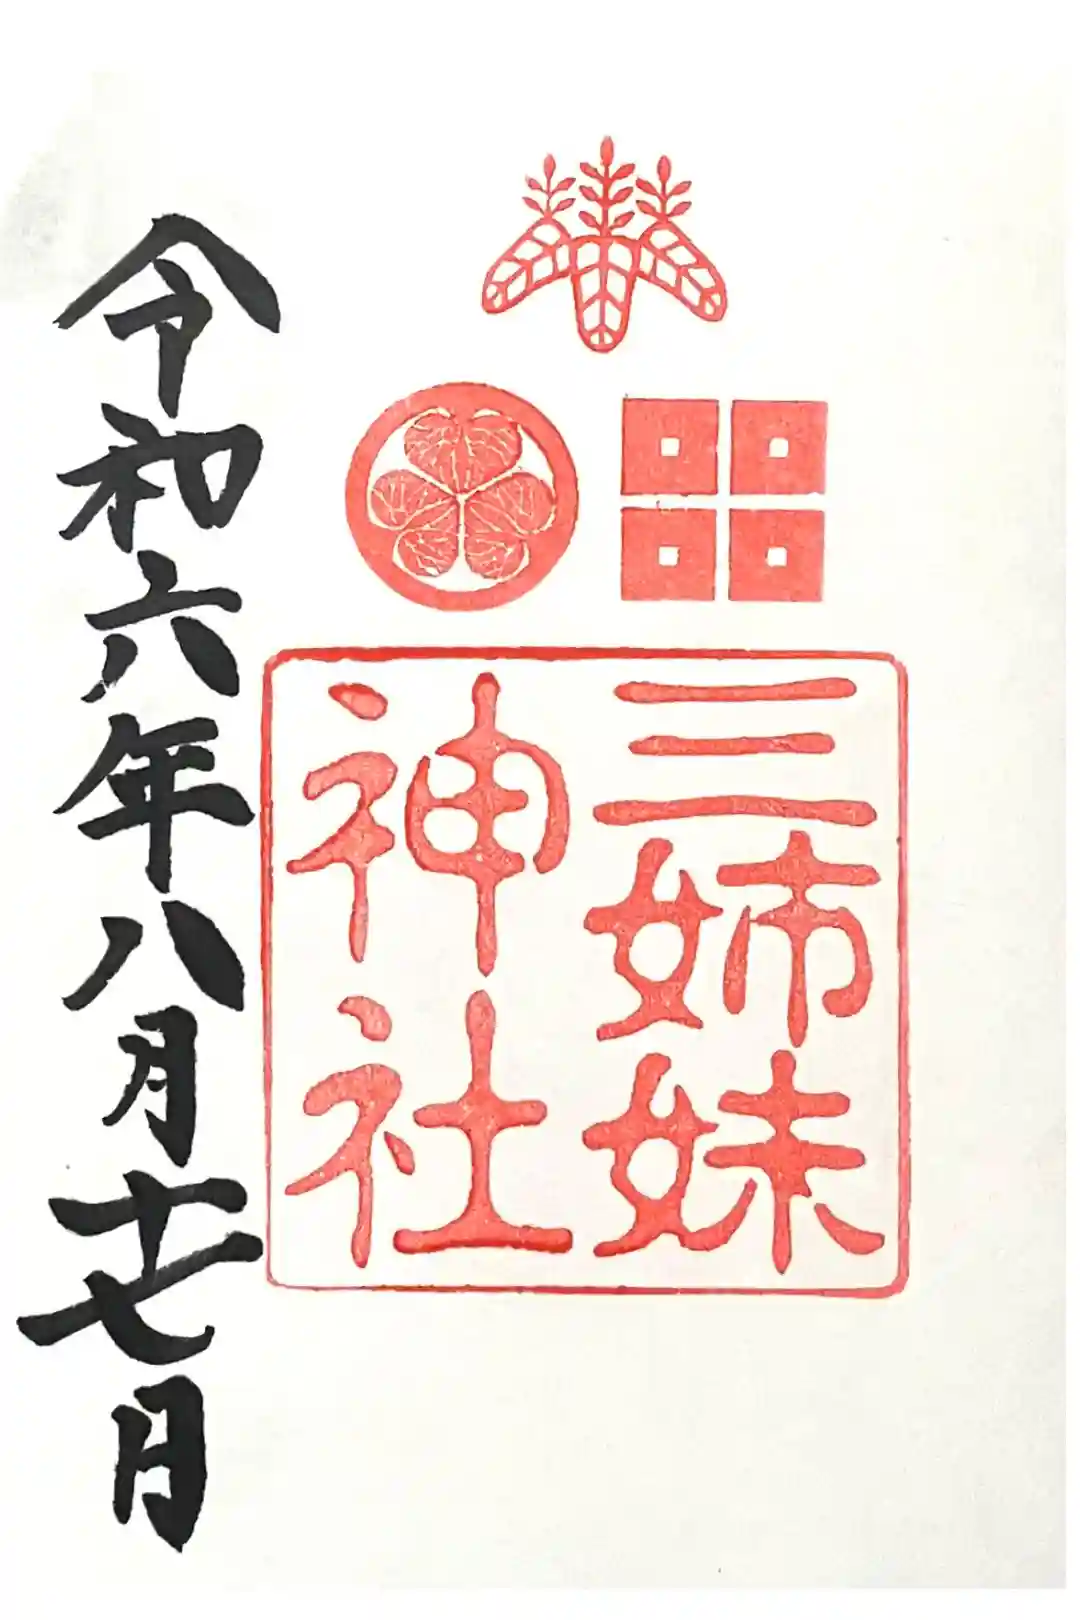 三姉妹
神社
令和六年八月十七日